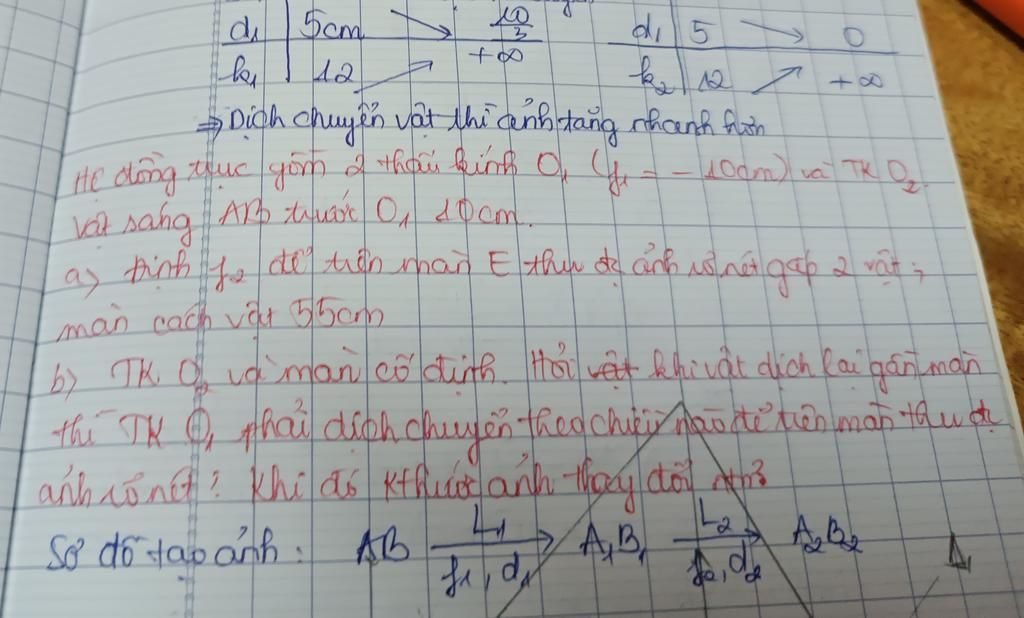 d₁ | 5cm ↘ 10/3
k₁ | 12 ↗ +∞
d₁ | 5 → 0
k₂ | 12 ↗ +∞
⇒ Dịch chuyển vật thì ảnh tăng nhanh hơn
Hệ đồng trục gồm 2 thấu kính O₁ (f₁ = -10cm) và TK O₂.
vật sáng AB trước O₁ 10cm.
a) Định f₂ để trên màn E thu đc ảnh rõ nét gấp 2 vật;
màn cách vật 55cm
b) TK O₂ và màn cố định. Hỏi khi vật dịch lại gần màn
thì TK O₁ phải dịch chuyển theo chiều nào để trên màn thu đc
ảnh rõ nét? Khi đó kthước ảnh thay đổi ntn?
Sơ đồ tạo ảnh: AB L₁ → f₁, d₁ A₁B₁ L₂ → f₂, d₂ A₂B₂